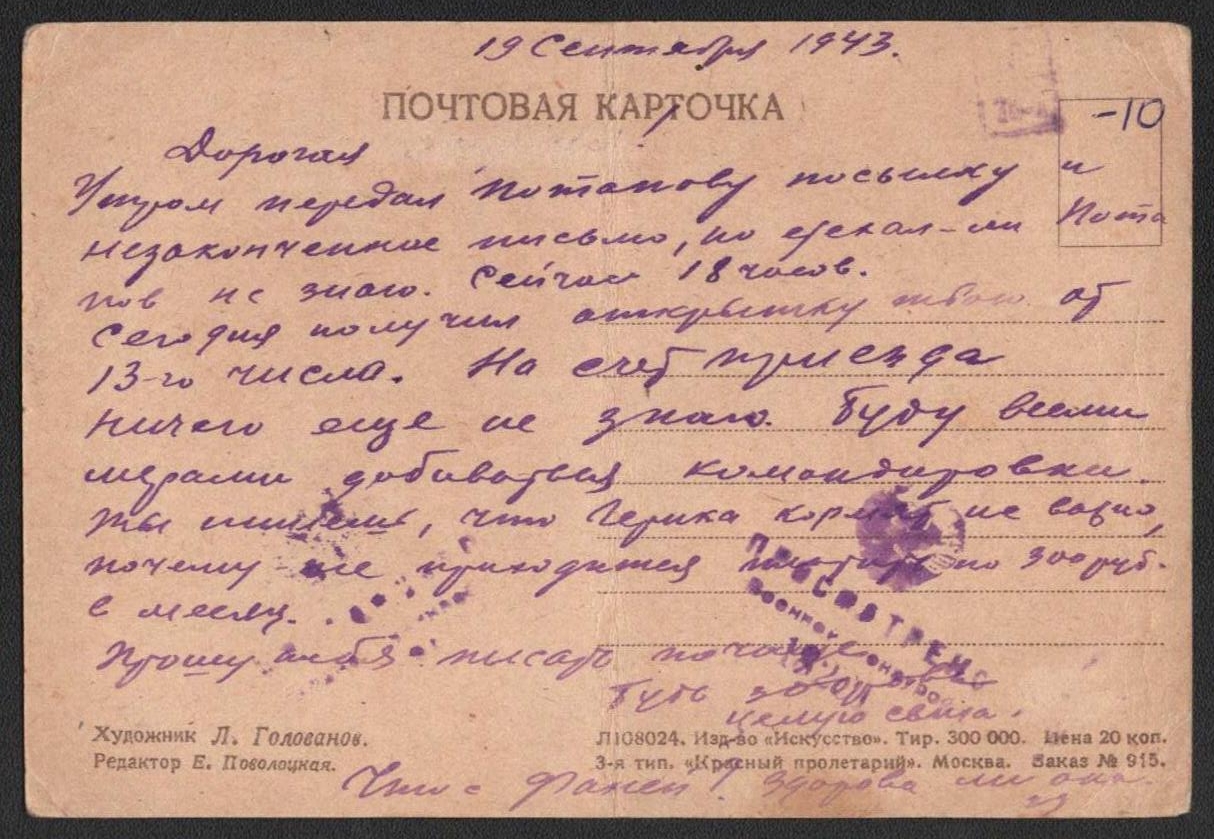 19 Сентября 1943.
ПОЧТОВАЯ КАРТОЧКА
-10
Дорогая
Утром передал Потапову посылку и
незаконченное письмо, но уехал-ли Пота
пов не знаю. Сейчас 18 часов.
Сегодня получил открытку твою от
13-го числа. На счет приезда
ничего еще не знаю. Буду всеми
мерами добиваться командировки.
Ты пишешь, что Герика кормят не важно,
почему же приходится платить по 300 руб.
в месяц.
Прошу тебя писать почаще
Будь здорова
целую
ПРОСМОТРЕНО
Военной Цензурой
Художник Л. Голованов.
Редактор Е. Поволоцкая.
Л108024. Изд-во «Искусство». Тир. 300 000. Цена 20 коп.
3-я тип. «Красный пролетарий». Москва. Заказ № 915.
Что с Фаней? Здорова ли она.